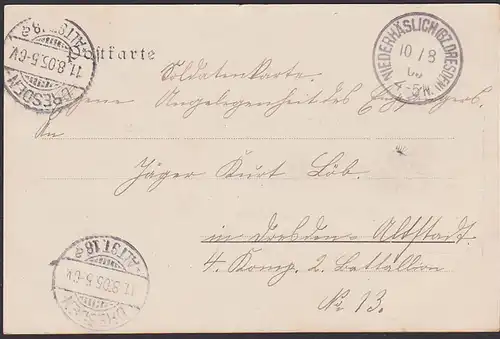 Postkarte
DRESDEN-ALTST. 18 d
11.8.05. 5-6 V.
NIEDERHÄSLICH (BZ. DRESDEN)
10/8
4-5 N.
Soldatenkarte.
Eigene Angelegenheit des Empfängers.
An
Jäger Kurt Löb.
in Dresden-Altstadt.
4. Komp. 2. Battallion
No 13.
DRESDEN-ALTST. 18 d
11.8.05. 5-6 V.